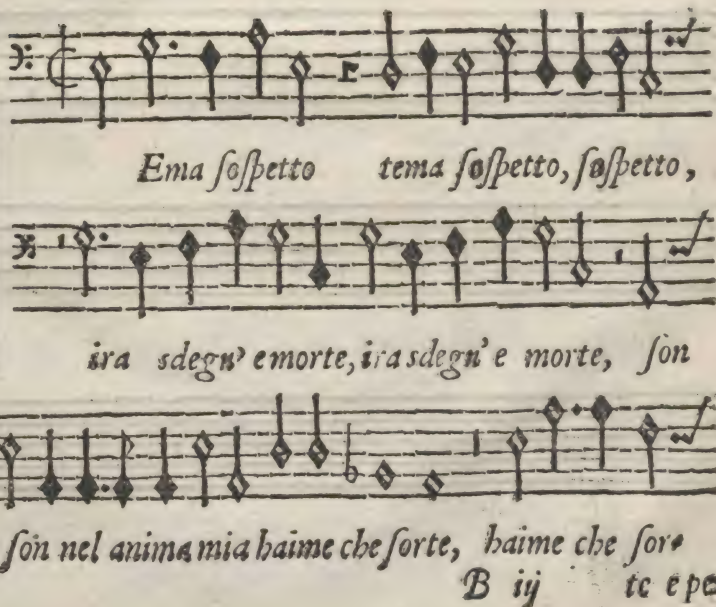 Ema ſoſpetto tema ſoſpetto, ſoſpetto,
ira sdegn' e morte, ira sdegn' e morte, ſon
ſon nel anima mia haime che ſorte, haime che ſor-
B iij te e pe